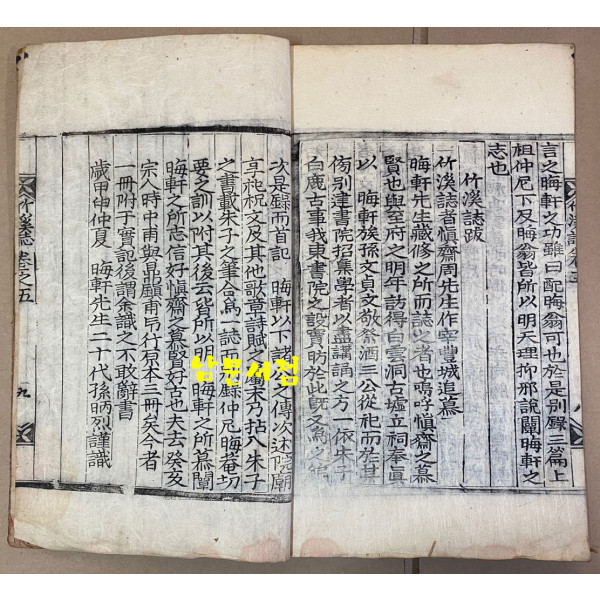 言之晦軒之功雖曰配晦翁可也於是別錄三篇上
祖仲尼下及晦翁皆所以明天理抑邪說闢晦軒之
志也
竹溪誌跋
竹溪誌者愼齋周先生作宰豐城追慕
晦軒先生藏修之所而誌以之者也嗚呼愼齋之慕
賢也與至府之明年訪得白雲洞古墟立祠奉眞
以 晦軒族孫文貞文敬祭酒三公從祀而於其
傍別建書院招集學者以盡講誦之方一依朱子
白鹿古事我東書院之設實昉於此旣又爲之
次是錄而首記 晦軒以下諸公之傳次述院廟
享祀祝文及其他歌章詩賦之屬末乃拈八朱子
之書載朱子之筆合爲一誌而錄仲尼晦菴切
要之訓以附其後云皆所以明 晦軒之所慕闡
晦軒之所志信好愼齋之慕賢好古也夫去癸亥
宗人時中甫與昂顧甫刊行原本三冊矣今者
一冊附于實記後謂余識之不敢辭書
歲甲仲仲夏 晦軒先生二十代孫昞烈謹識
竹溪誌 卷之五
九
竹溪誌
八
남문서점